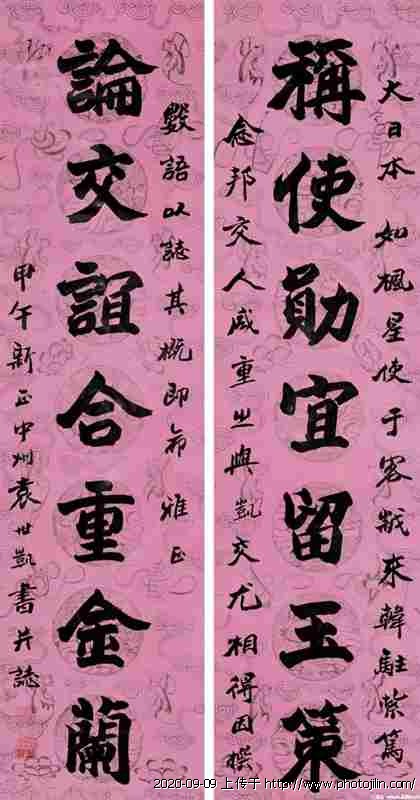 大日本 如楓星使于客歲來韓駐紮篤
稱使勛宜留玉策
念邦交人咸重之與凱交尤相得因撰
數語以誌其概即希雅正
論交誼合重金蘭
甲午新正中州袁世凱書并誌
2020-09-09 上传于 http://www.photojilin.com